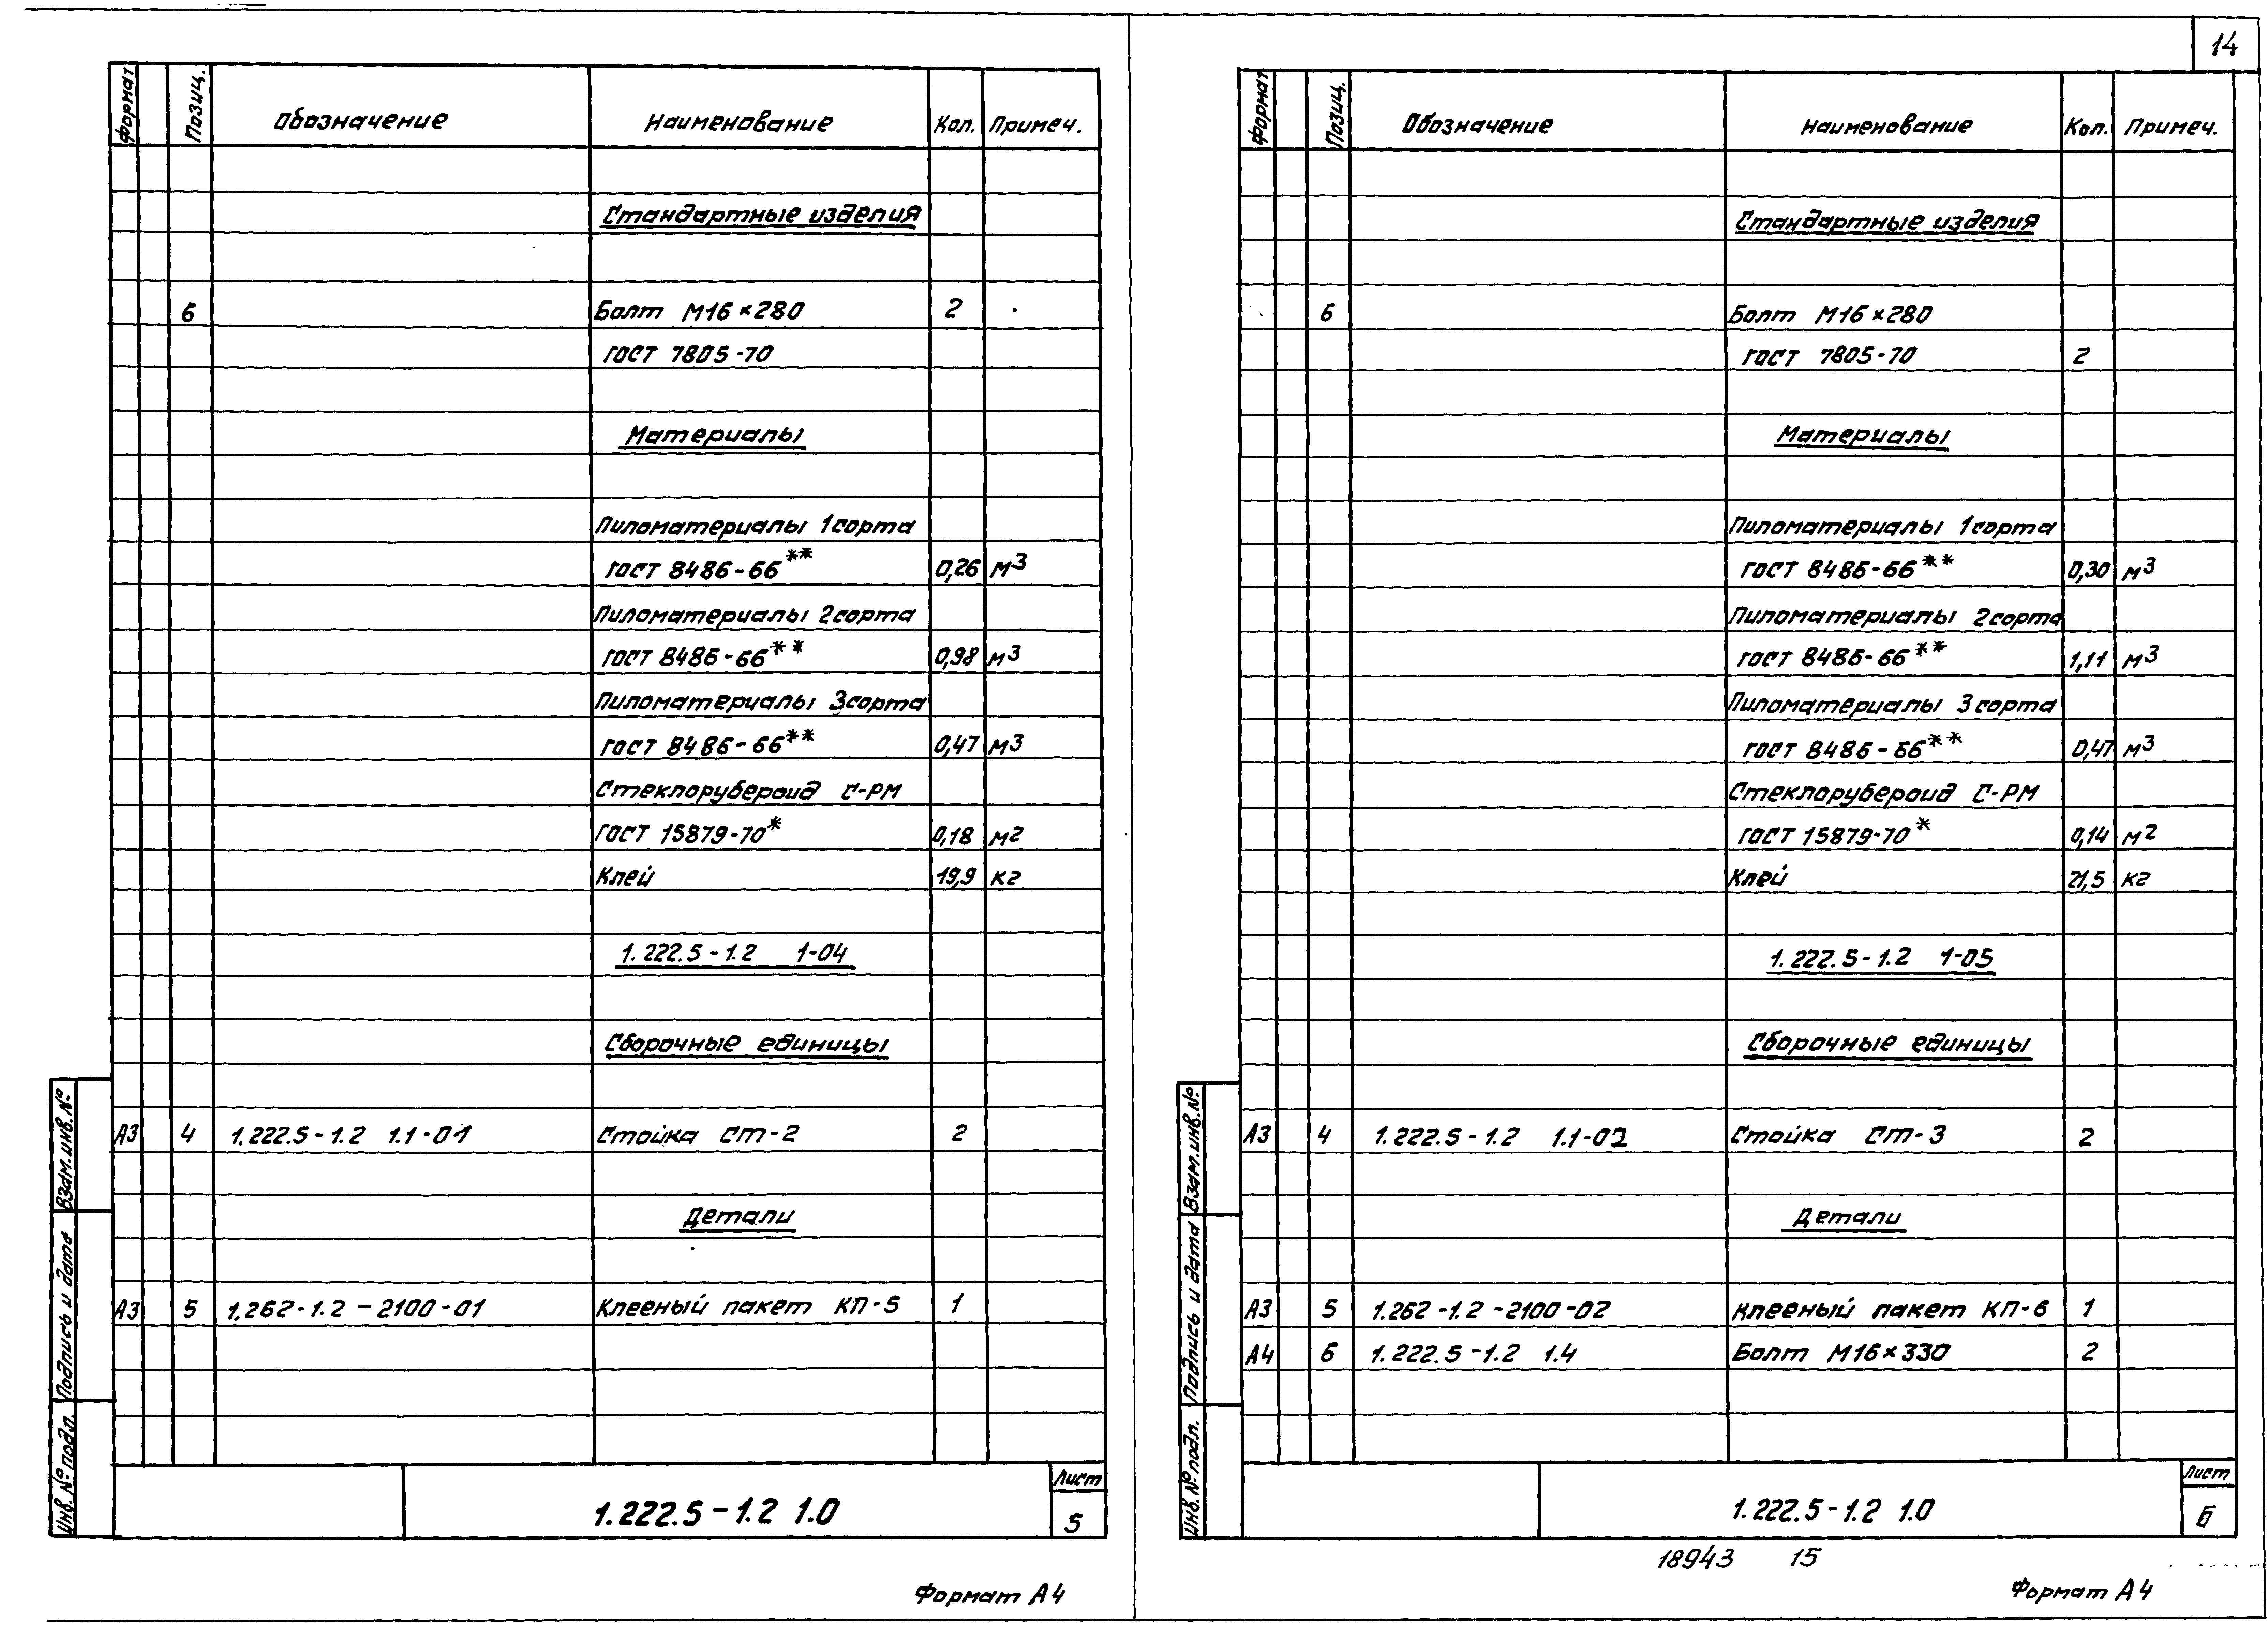 14
Формат Позиц. Обозначение Наименование Кол. Примеч.
Стандартные изделия
6 Болт М16×280 2
ГОСТ 7805-70
Материалы
Пиломатериалы 1 сорта
ГОСТ 8486-66** 0,26 м3
Пиломатериалы 2 сорта
ГОСТ 8486-66** 0,98 м3
Пиломатериалы 3 сорта
ГОСТ 8486-66** 0,47 м3
Стеклорубероид С-РМ
ГОСТ 15879-70* 0,18 м2
Клей 19,9 кг
1.222.5-1.2 1-04
Сборочные единицы
А3 4 1.222.5-1.2 1.1-01 Стойка СТ-2 2
Детали
А3 5 1.262-1.2-2100-01 Клееный пакет КП-5 1
Взам.инв.№
Подпись и дата
Инв.№подл.
1.222.5-1.2 1.0
Лист
5
Формат А4
Формат Позиц. Обозначение Наименование Кол. Примеч.
Стандартные изделия
6 Болт М16×280
ГОСТ 7805-70 2
Материалы
Пиломатериалы 1 сорта
ГОСТ 8486-66** 0,30 м3
Пиломатериалы 2 сорта
ГОСТ 8486-66** 1,11 м3
Пиломатериалы 3 сорта
ГОСТ 8486-66** 0,47 м3
Стеклорубероид С-РМ
ГОСТ 15879-70* 0,14 м2
Клей 21,5 кг
1.222.5-1.2 1-05
Сборочные единицы
А3 4 1.222.5-1.2 1.1-02 Стойка СТ-3 2
Детали
А3 5 1.262-1.2-2100-02 Клееный пакет КП-6 1
А4 6 1.222.5-1.2 1.4 Болт М16×330 2
Взам.инв.№
Подпись и дата
Инв.№подл.
1.222.5-1.2 1.0
Лист
6
18943 15
Формат А4